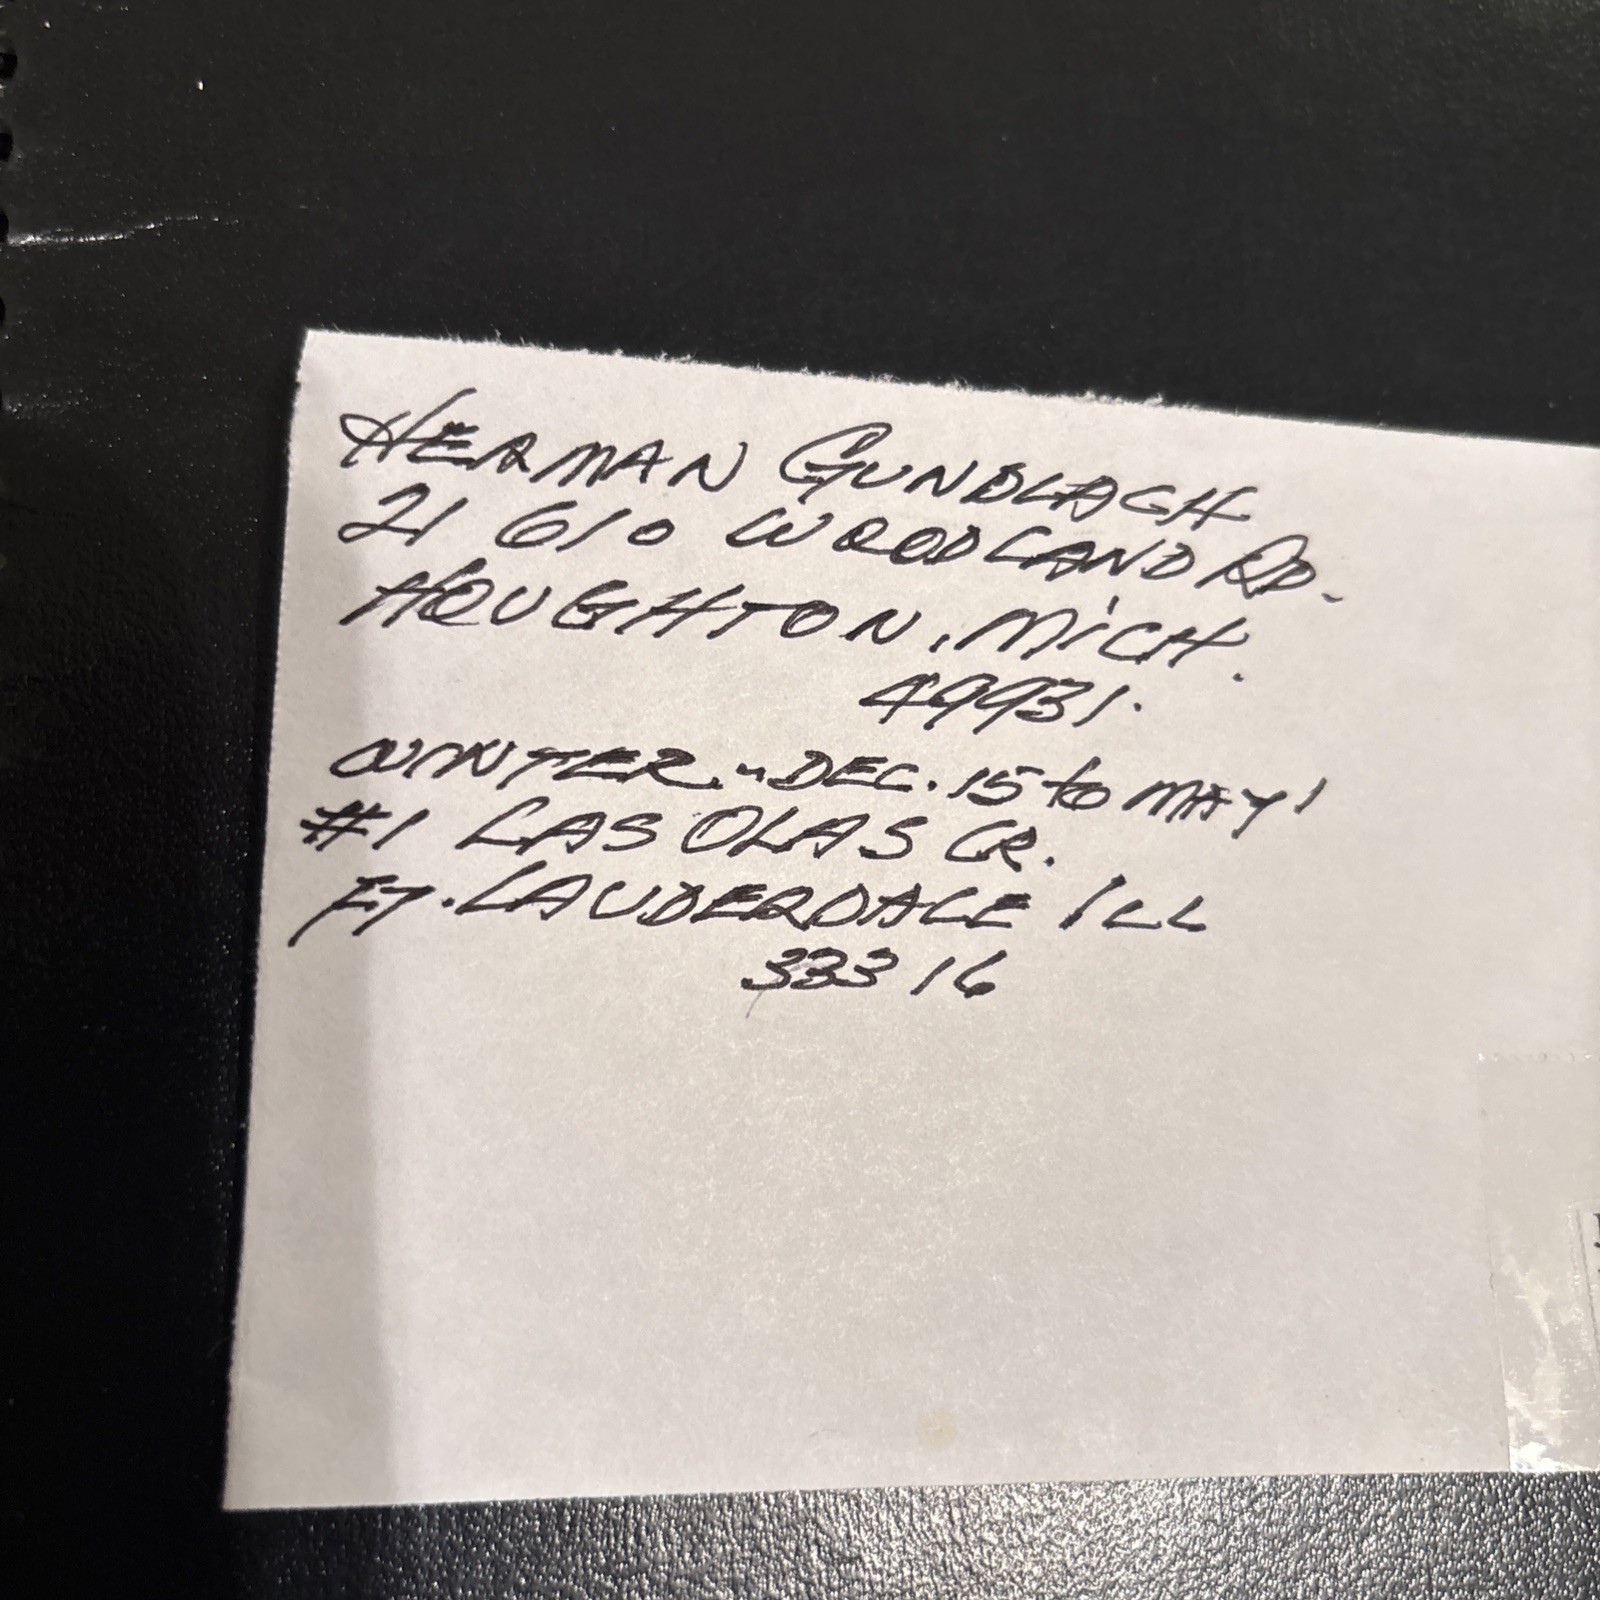 HERMAN GUNDLACH
21 610 WOODLAND RD.
HOUGHTON, MICH.
49931.
WINTER. - DEC. 15 to MAY 1
#1 LAS OLAS CR.
FT. LAUDERDALE ILL
33316